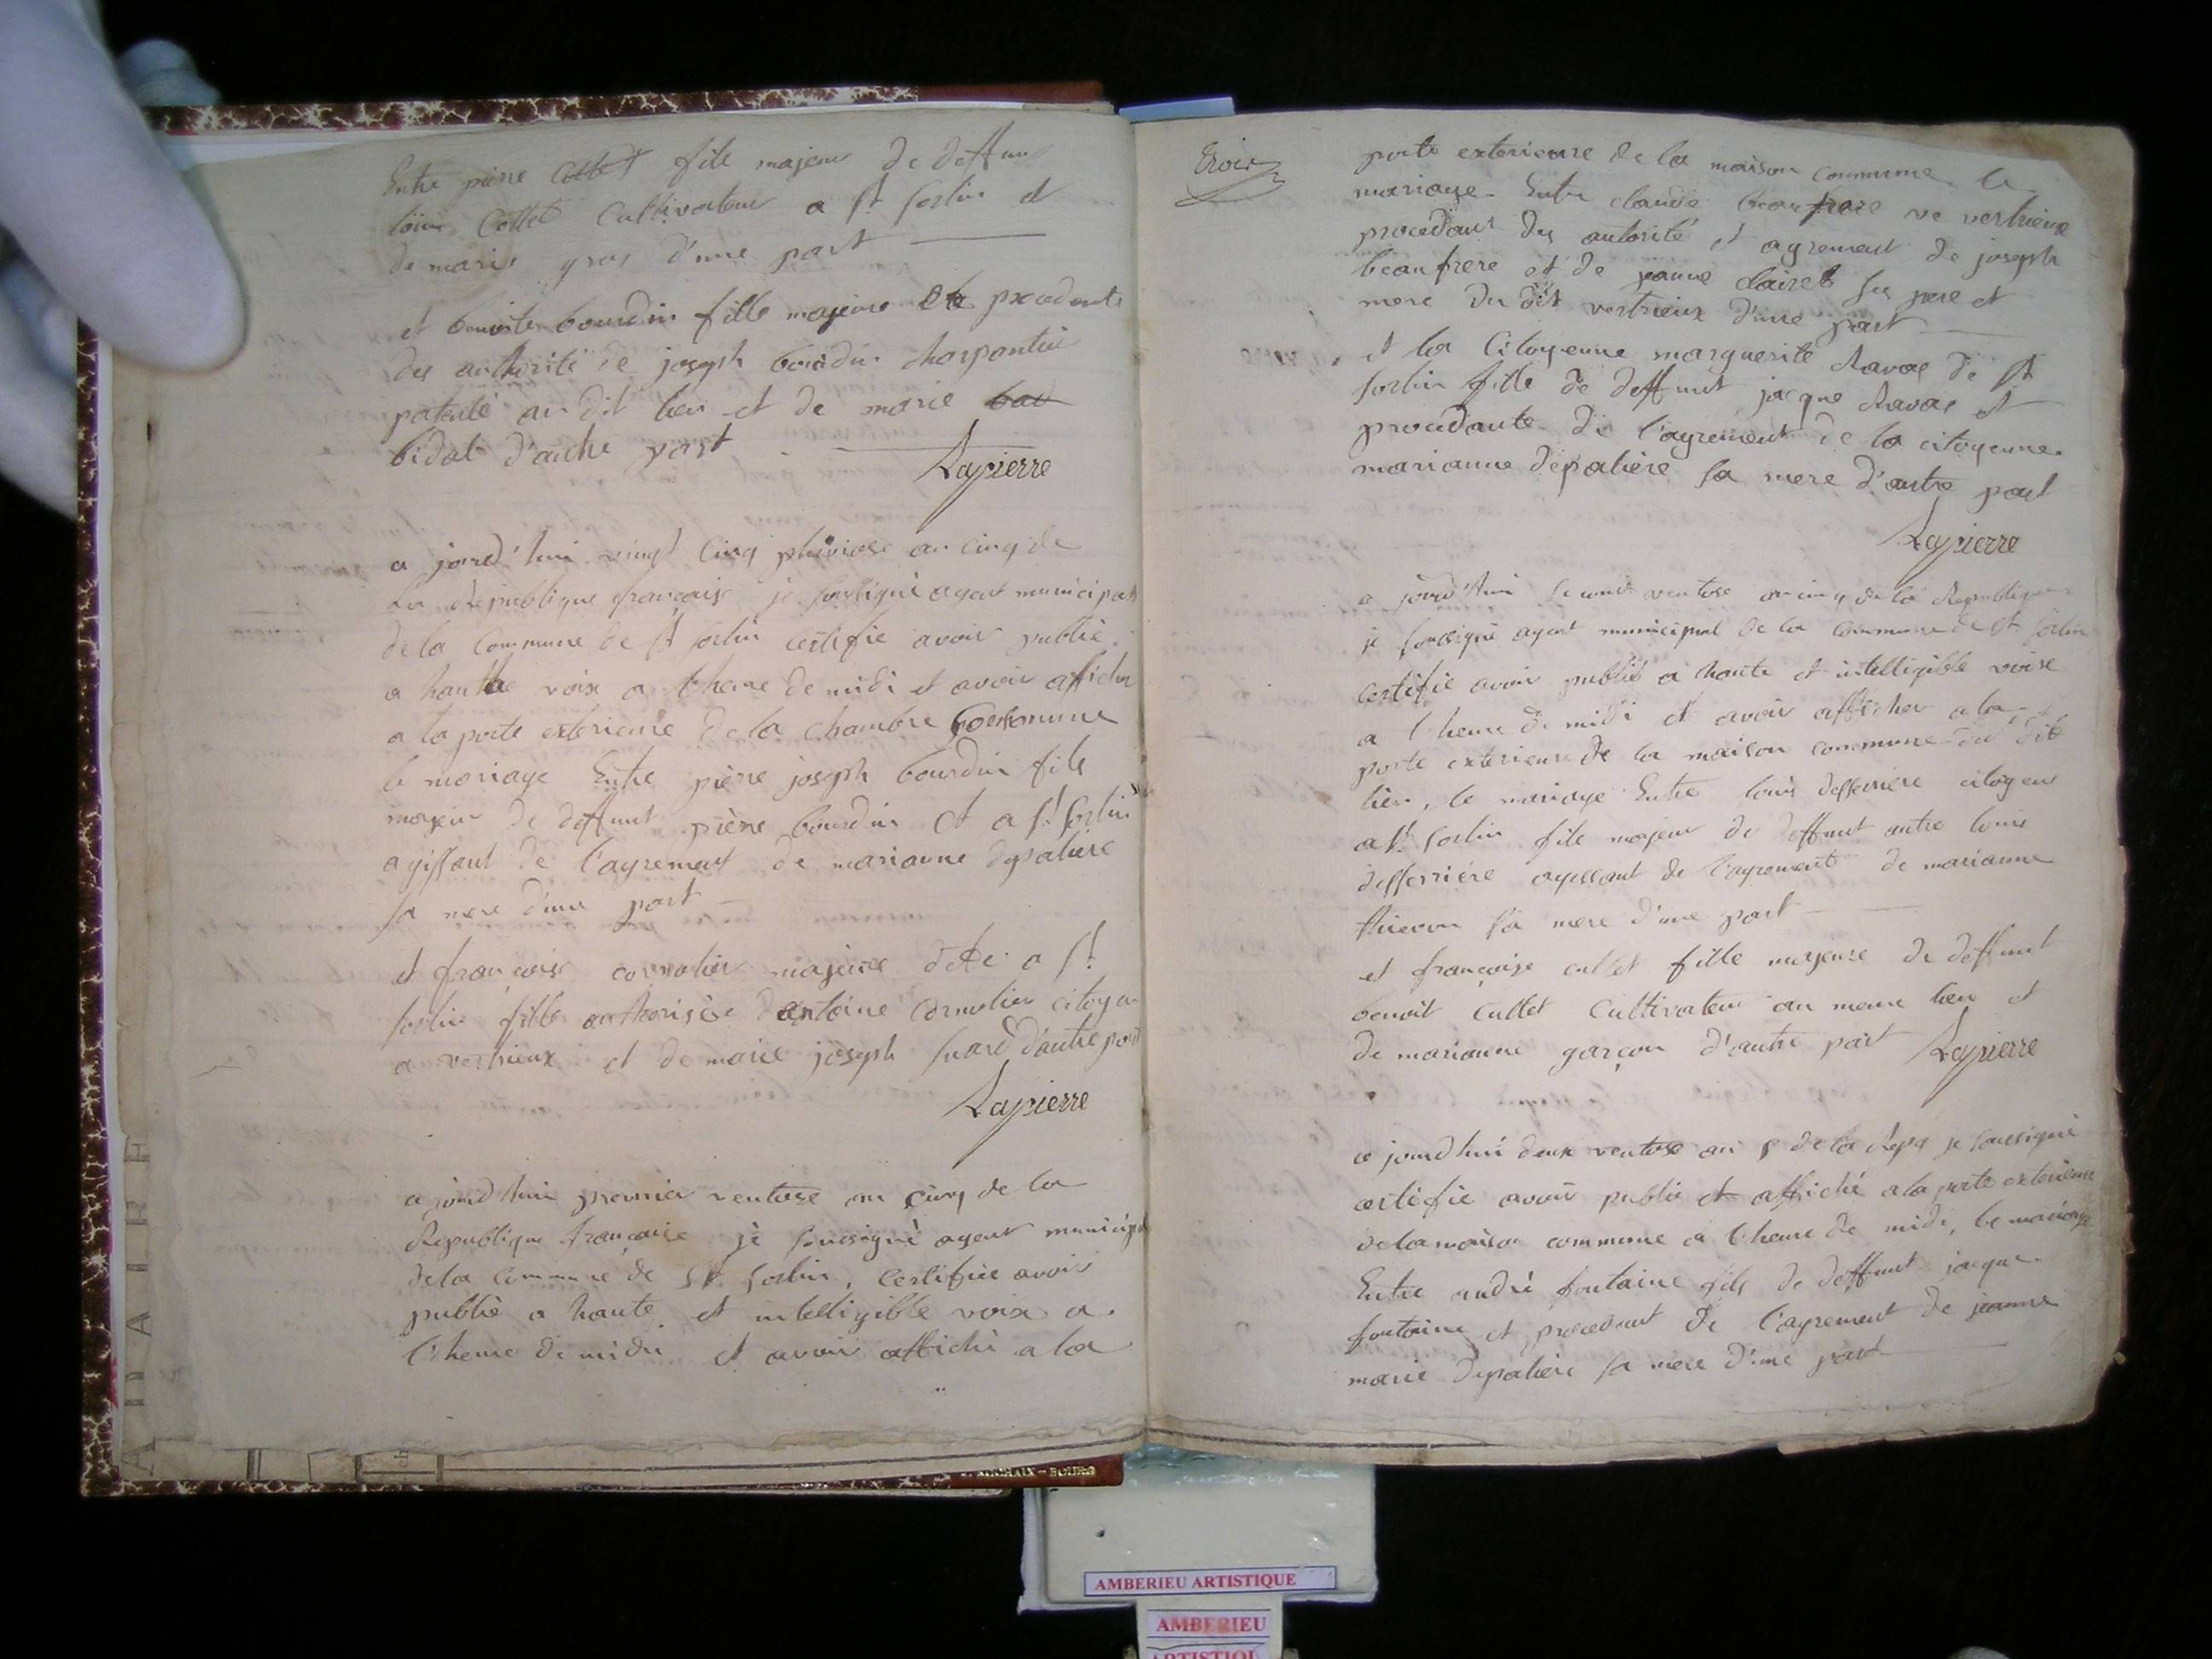 Entre pierre Collet fils majeur de deffunt
loüis Collet Cultivateur a St Sorlin et
de marie gros d'une part
et benoite bourdin fille majeure procedante
des authorité de joseph bourdin charpantié
patenté au dit lieu et de marie
bidal d'autre part
Lapierre
a jourd'hui vingt Cinq pluviose an cinq de
La République française je soussigné agent municipal
de la Commune de St Sorlin certifie avoir publié
a hautte voix a l'heure de midi et avoir afficher
a la porte exterieure de la chambre Commune
le mariage Entre pierre joseph bourdin fils
majeur de deffunt pierre bourdin et a St Sorlin
agissant de l'agrement de marianne depaliere
sa mere d'une part
et françoise cormolier majeure a St
Sorlin fille authorisée d'antoine Cormolier citoyen
a vertrieux et de marie joseph suard d'autre part
Lapierre
a jourd'hui premier ventose an çinq de la
Republique française je sousigné agent municipal
de la Commune de St Sorlin, Certifiée avoir
publié a haute et intelligible voix a
l'heure de midu et avoir affiché a la
trois
porte exterieure de la maison commune le
mariage Entre claude beaufrere de vertrieux
procedant des autorité et agrement de joseph
beaufrere et de jeanne clairet ses pere et
mere du dit vertrieux d'une part
et la Citoyenne marguerite Ravas de St
Sorlin fille de deffunt jacque Ravas et
procedante de l'agrement de la citoyenne
marianne depaliere sa mere d'autre part
Lapierre
a jourd'hui ventose an cinq de la Republique
je soussigné agent municipal de la commune de St Sorlin
certifie avoir publié a haute et intelligible voixe
a l'heure de midi et avoir afficher a la
porte exterieure de la maison commune du dit
lieu, le mariage Entre loüis desserriere citoyen
a St Sorlin fils majeur de deffunt autre louis
desserriere agessant de l'agrement de marianne
sa mere d'une part
et françoise cullet fille majeure de deffunt
benoit cullet Cultivateur au meme lieu et
de marianne garçon d'autre part
Lapierre
a jourd'hui deux ventose an 5 de la Repq je soussigné
certifie avoir publié et affiché a la porte exterieure
de la maison commune a l'heure de midi, le mariage
Entre andré fontaine fils de deffunt jacque
fontaine et procedant de l'agrement de jeanne
marie depaliere sa mere d'une part
AMBERIEU ARTISTIQUE
AMBERIEU